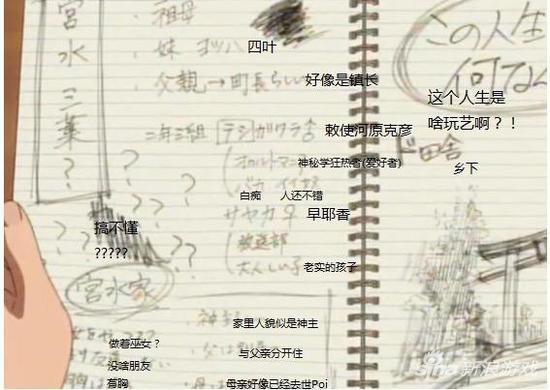 宮水三葉
？
？
？
・祖母
・妹 ヨツハ
四叶
・父親→町長らしい
好像是镇长
この人生
何なん
这个人生是
啥玩艺啊？！
二年三組
テシガワラ♂
敕使河原克彦
ド田舎
乡下
(オカルトマニア
神秘学狂热者(爱好者)
バカ
白痴 人还不错
サヤカ
早耶香
搞不懂
?????
？？
？？
(放送部
老实的孩子
宮水家
家里人貌似是神主
做着巫女？
与父亲分开住
没啥朋友
蓦胸
母亲好像已经去世Poi
sina新浪游戏